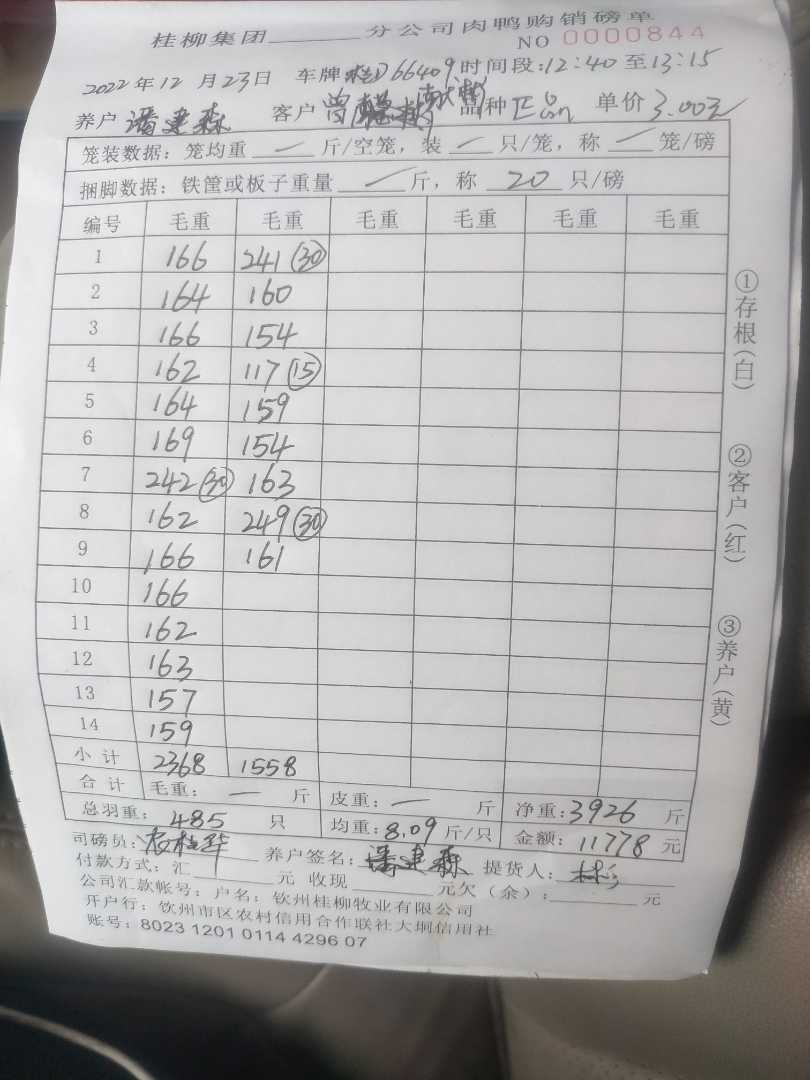 桂柳集团 分公司肉鸭购销磅单
NO 0000844
2022年12月23日 车牌桂D66409 时间段:12:40至13:15
养户 潘建森 客户 曾 品种 匹品 单价 3.00元
笼装数据: 笼均重 — 斤/空笼, 装 — 只/笼, 称 — 笼/磅
捆脚数据: 铁筐或板子重量 — 斤, 称 20 只/磅
编号 毛重 毛重 毛重 毛重 毛重 毛重
1 166 241 (30)
2 164 160
3 166 154
4 162 117 (15)
5 164 159
6 169 154
7 242 (30) 163
8 162 249 (30)
9 166 161
10 166
11 162
12 163
13 157
14 159
小计 2368 1558
合计 毛重: — 斤 皮重: — 斤 净重: 3926 斤
总羽重: 485 只 均重: 8.09 斤/只 金额: 11778 元
司磅员: 农桂华 养户签名: 潘建森 提货人: 彬
付款方式: 汇 元 收现 元欠(余): 元
公司汇款帐号: 户名: 钦州桂柳牧业有限公司
开户行: 钦州市区农村信用合作联社大垌信用社
账号: 8023 1201 0114 4296 07
①存根(白) ②客户(红) ③养户(黄)